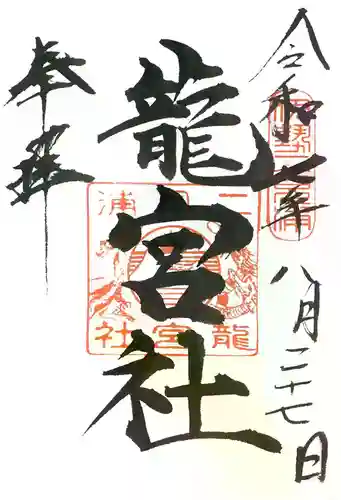 令和七年八月二十七日
龍宮社
奉拝
二見浦
龍宮社